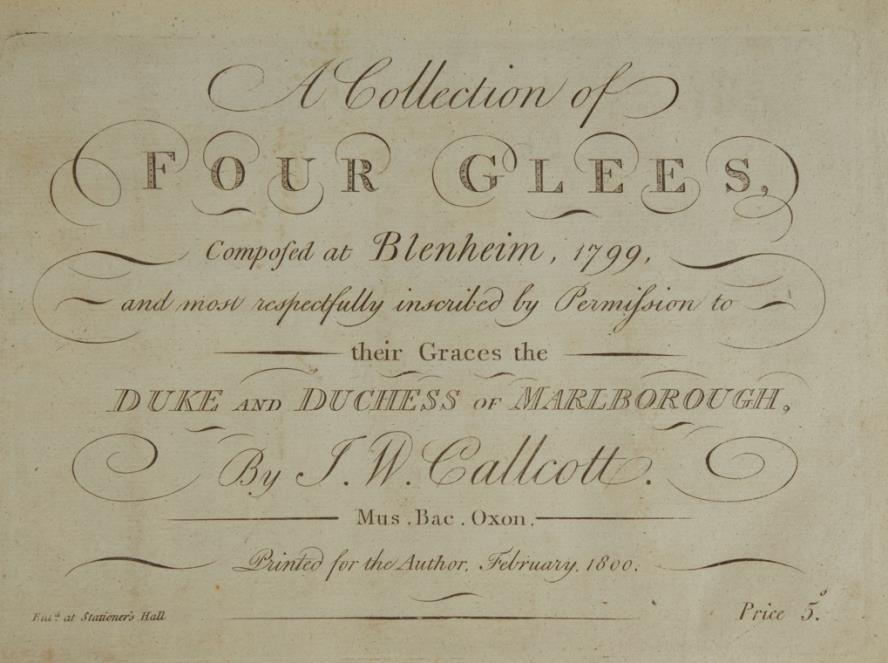 A Collection of
FOUR GLEES,
Compoſed at Blenheim, 1799,
and most respectfully inscribed by Permiſsion to
their Graces the
DUKE AND DUCHESS OF MARLBOROUGH,
By J. W. Callcott.
Mus. Bac. Oxon.
Printed for the Author, February, 1800.
Ent.ᵈ at Stationer's Hall
Price 5.ˢ